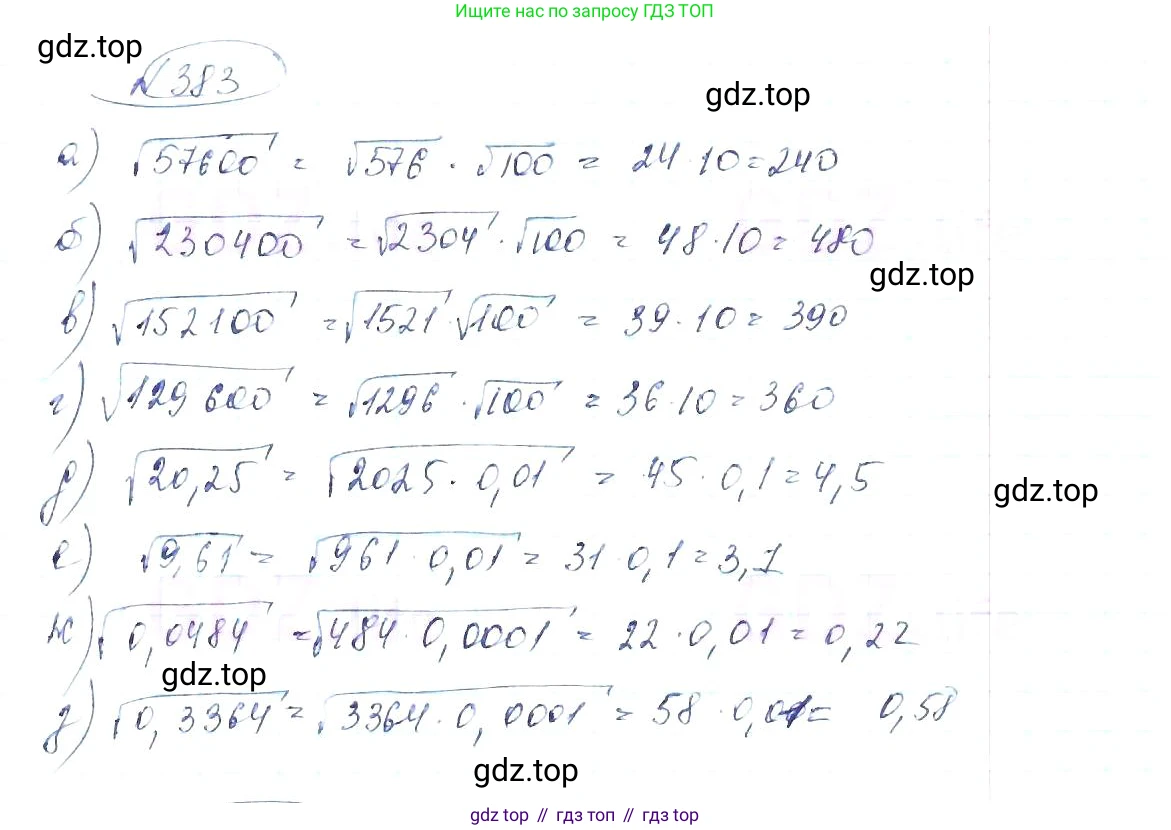 Ищите нас по запросу ГДЗ ТОП
gdz.top
№383
gdz.top
а) √57600 = √576 · √100 = 24·10=240
б) √230400 = √2304 · √100 = 48·10= 480
gdz.top
в) √152100 = √1521 · √100 = 39·10= 390
г) √129600 = √1296 · √100 = 36·10=360
д) √20,25 = √2025·0,01 = 45·0,1=4,5
gdz.top
е) √9,61 = √961·0,01 = 31·0,1=3,1
ж) √0,0484 = √484·0,0001 = 22·0,01=0,22
gdz.top
з) √0,3364 = √3364·0,0001 = 58·0,01= 0,58
gdz.top
gdz top // гдз топ // гдз top